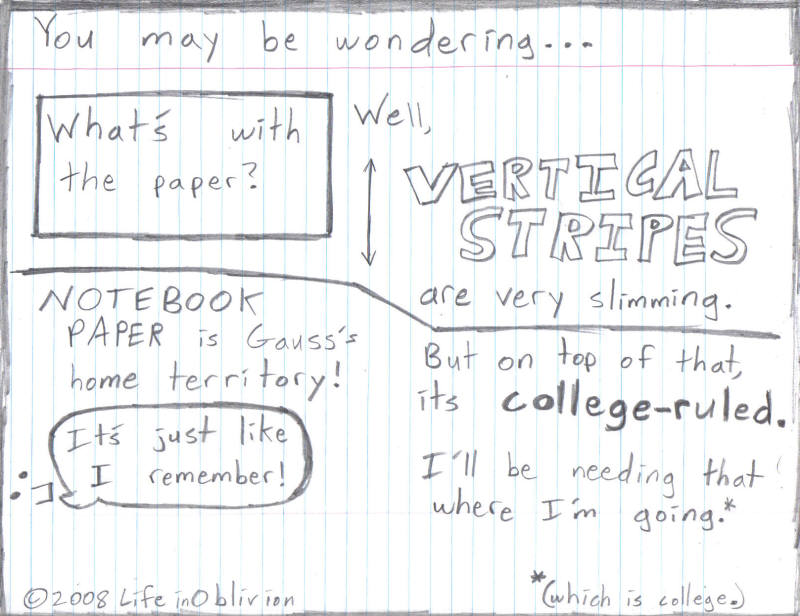 You may be wondering...
What's with
the paper?
Well,
VERTICAL
STRIPES
are very slimming.
NOTEBOOK
PAPER is Gauss's
home territory!
It's just like
I remember!
:-]
But on top of that,
its college-ruled.
I'll be needing that
where I'm going.*
*(which is college.)
©2008 Life inOblivion